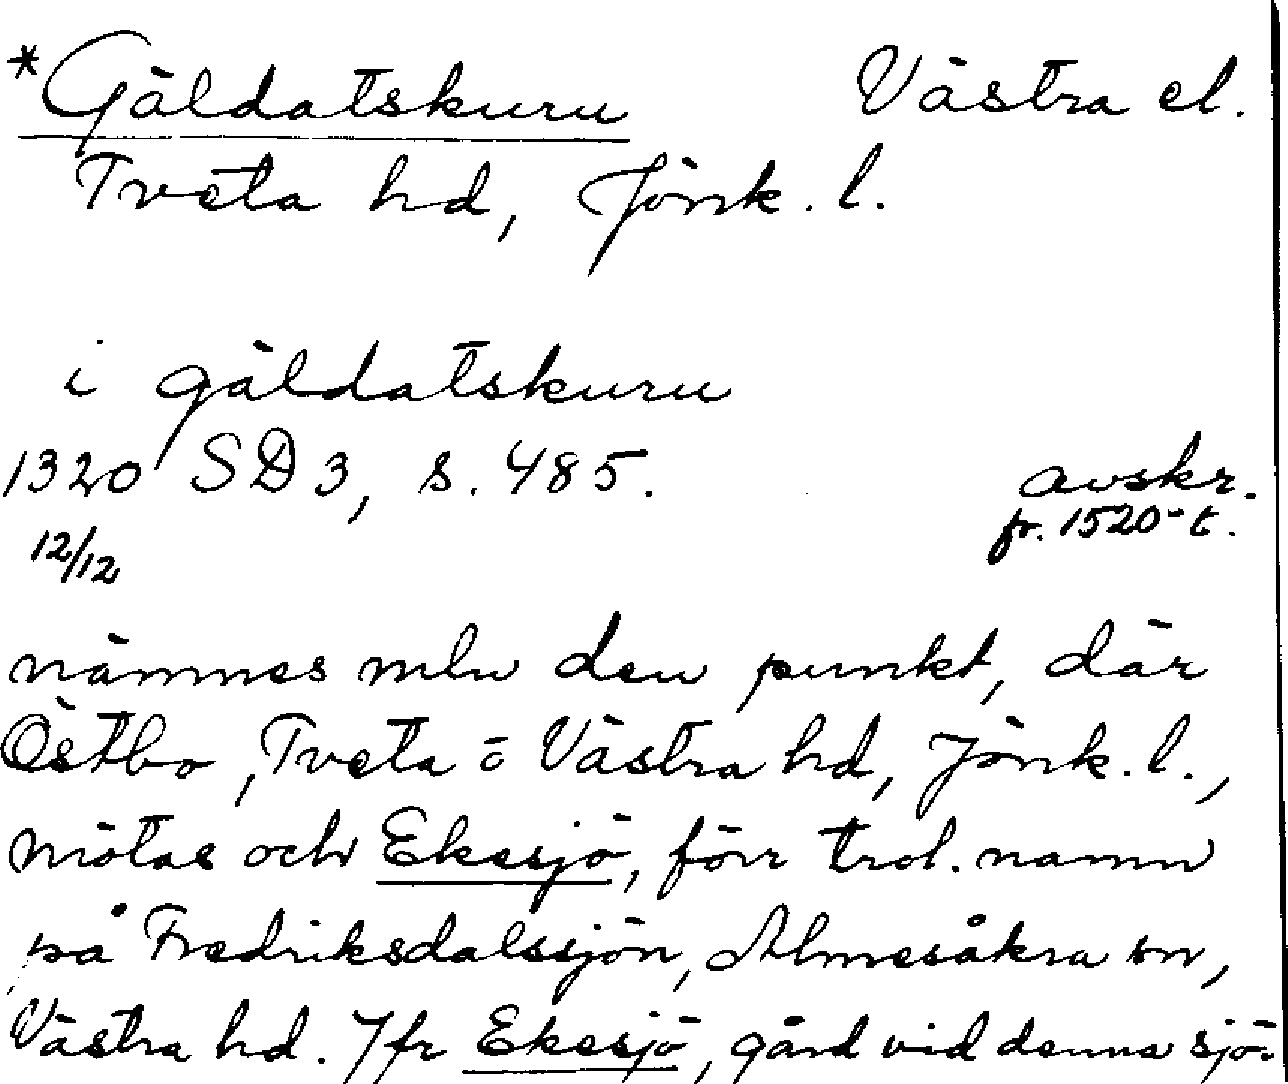 *Gäldatskuru Västra el.
Tveta hd, Jönk. l.
i gäldatskuru
1320 SD 3, s. 485. avskr.
12/12 fr. 1520-t.
nämnes mln den punkt, där
Östbo, Tveta o Västra hd, Jönk. l.,
mötas och Ekesjö, förr trol. namn
på Fredriksdalssjön, Almesåkra sn,
Västra hd. Jfr Ekesjö, gård vid denna sjö.